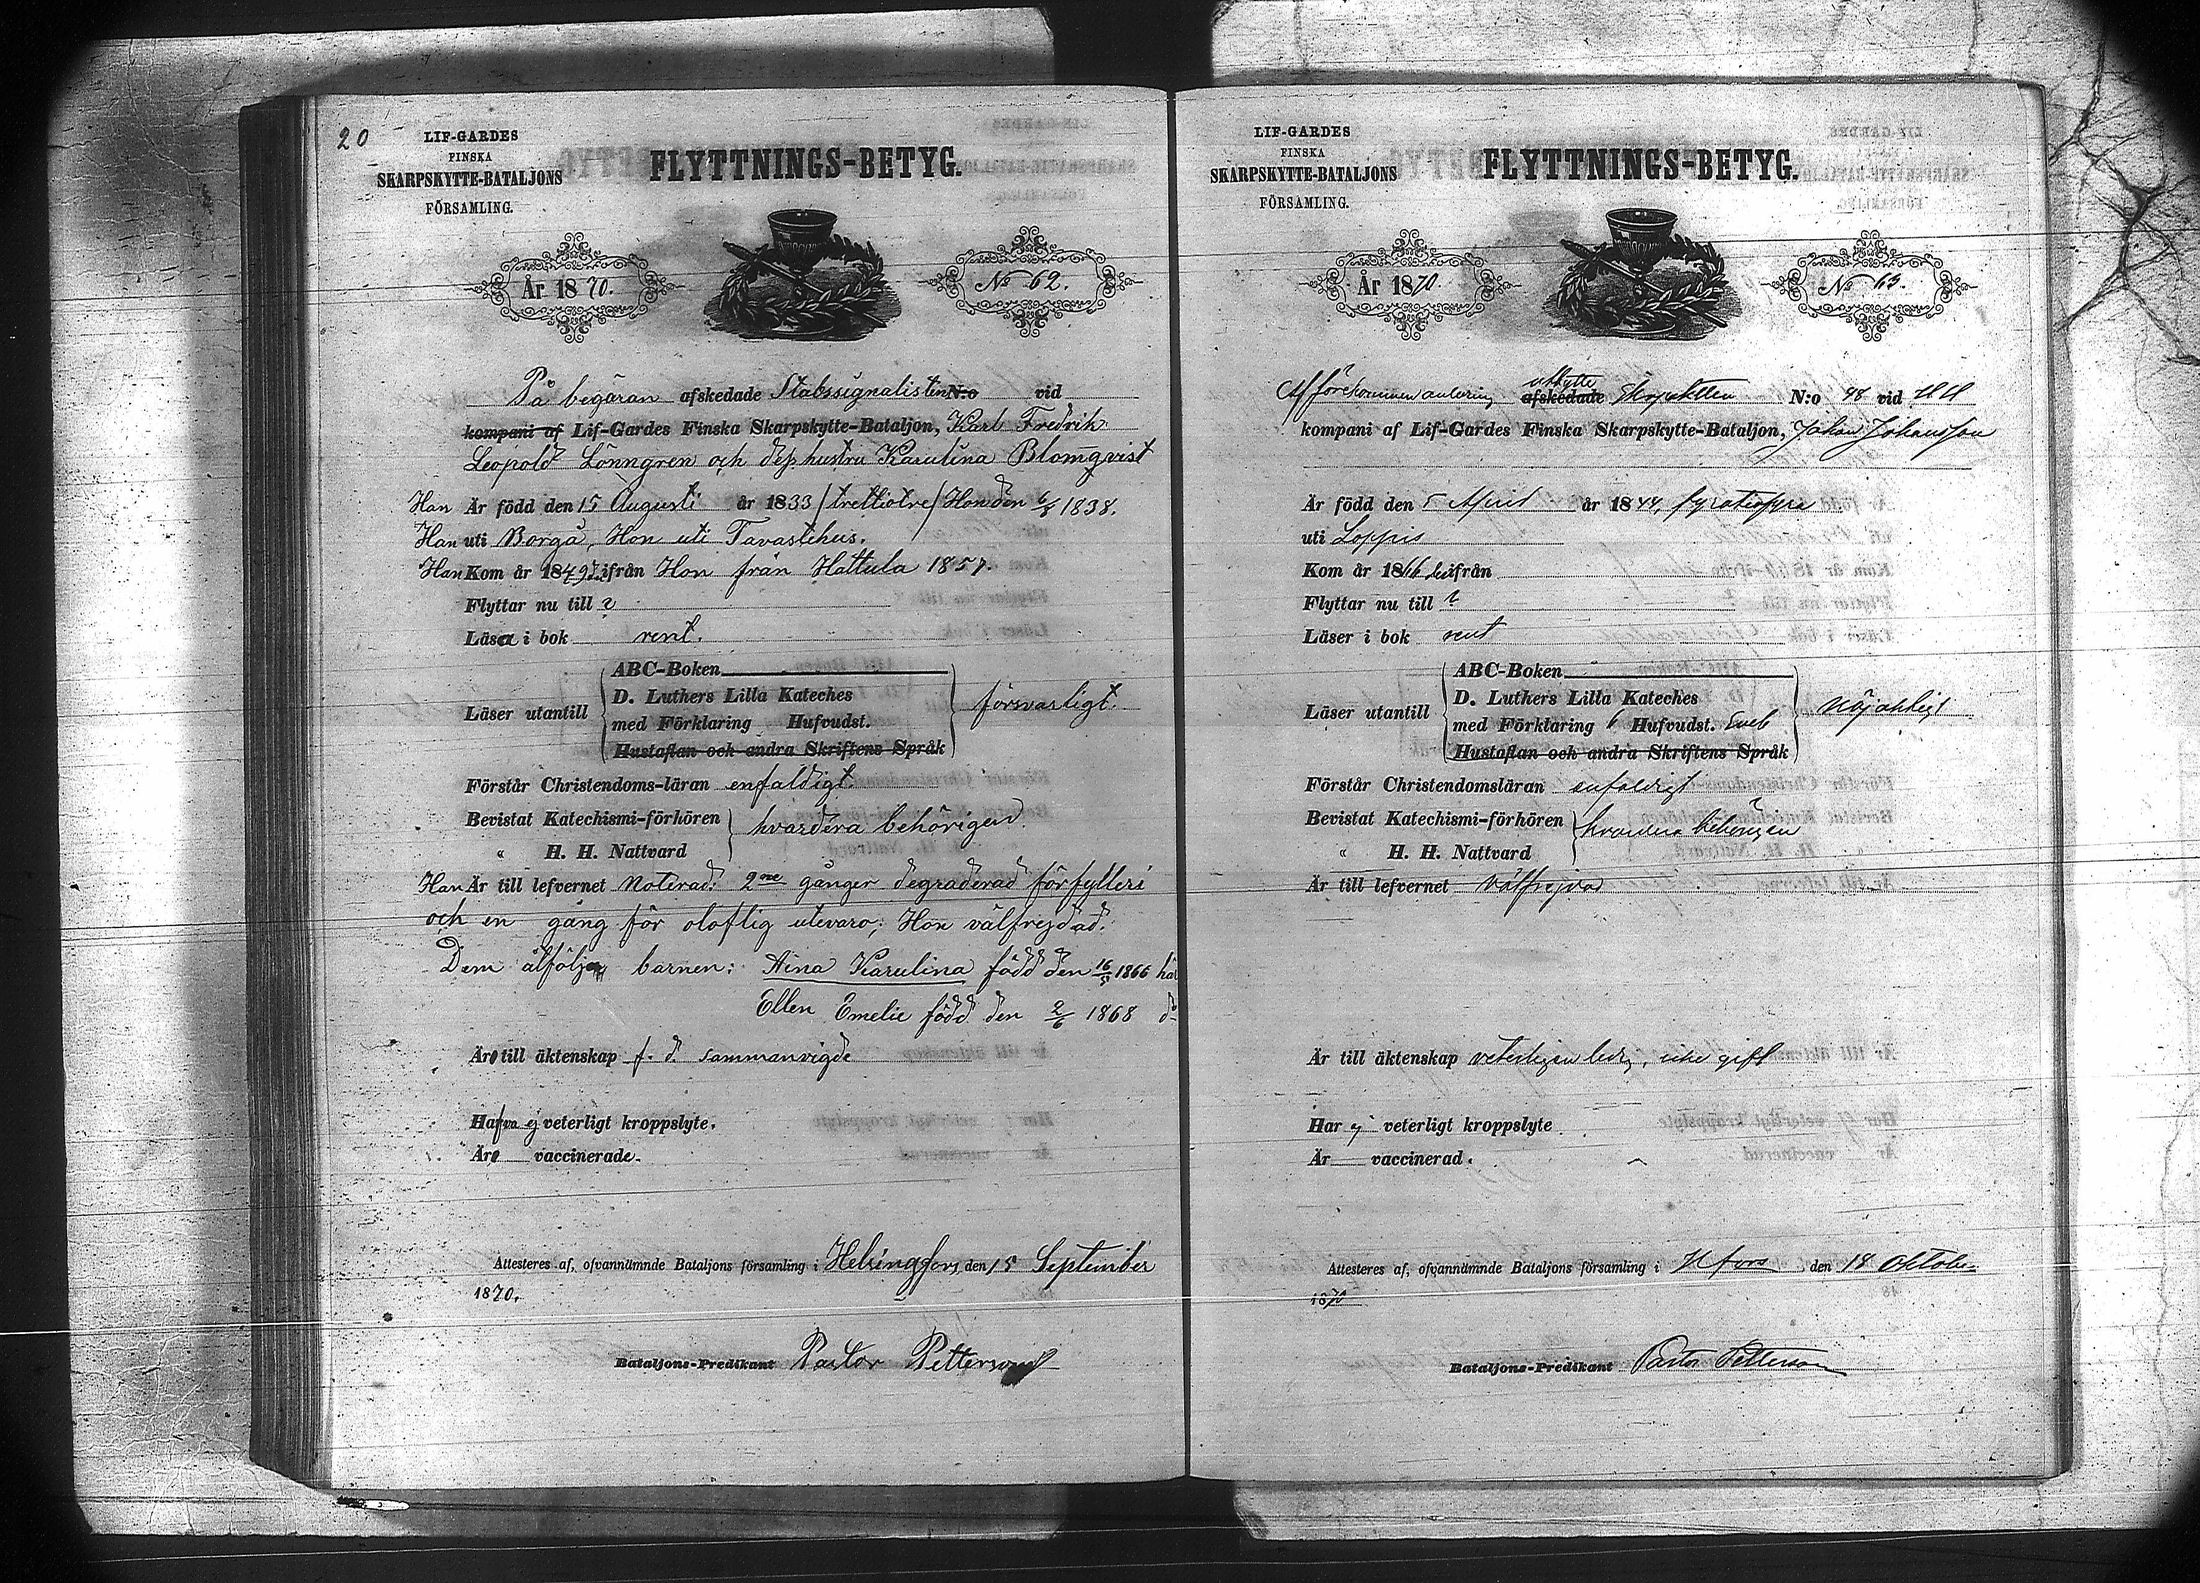 20
LIF-GARDES
FINSKA
SKARPSKYTTE-BATALJONS
FÖRSAMLING.
FLYTTNINGS-BETYG.
År 1870.
No 62.
På begäran afskedade Stabssignalisten N:o vid
kompani af Lif-Gardes Finska Skarpskytte-Bataljon, Karl Fredrik
Leopold Lönngren och dess hustru Karulina Blomqvist
Han Är född den 15 Augusti år 1833 /trettiotre/ Hon den 6/8 1838.
Han uti Borgå, Hon uti Tavastehus.
Han Kom år 1849 ifrån Hon från Hattula 1857.
Flyttar nu till ?
Läsa i bok rent.
Läser utantill
ABC-Boken
D. Luthers Lilla Kateches
med Förklaring Hufvudst.
Hustaflan och andra Skriftens Språk
försvarligt.
Förstår Christendoms-läran enfaldigt.
Bevistat Katechismi-förhören
" H. H. Nattvard
hvardera behörigen
Han Är till lefvernet Noterad: 2ne gånger degraderad för fylleri
och en gång för oloflig utevaro; Hon välfrejdad.
Dem åtfölja barnen: Aina Karulina född den 16/5 1866 här
Ellen Emelie född den 2/6 1868 do
Äro till äktenskap f. d. sammanvigde
Hafva ej veterligt kroppslyte.
Äro vaccinerade.
Attesteres af, ofvannämnde Bataljons församling i Helsingfors, den 15 September
1870.
Bataljons-Predikant Pastor Petterson
LIF-GARDES
FINSKA
SKARPSKYTTE-BATALJONS
FÖRSAMLING.
FLYTTNINGS-BETYG.
År 1870.
No 63.
Af förekommen anledning utbytte afskedade N:o 48 vid
kompani af Lif-Gardes Finska Skarpskytte-Bataljon, Johan Johansson
Är född den 5 April år 1844, fyratiofyra
uti Loppis
Kom år 1866 ifrån
Flyttar nu till ?
Läser i bok rent
Läser utantill
ABC-Boken
D. Luthers Lilla Kateches
med Förklaring 6 Hufvudst. Sveb
Hustaflan och andra Skriftens Språk
nöjaktigt
Förstår Christendomsläran enfaldigt
Bevistat Katechismi-förhören
" H. H. Nattvard
hvardera behörigen
Är till lefvernet välfrejdad
Är till äktenskap veterligen ledig, icke gift
Har ej veterligt kroppslyte
Är vaccinerad.
Attesteres af, ofvannämnde Bataljons församling i Hfors den 18 Oktober
1870
Bataljons-Predikant Pastor Petterson